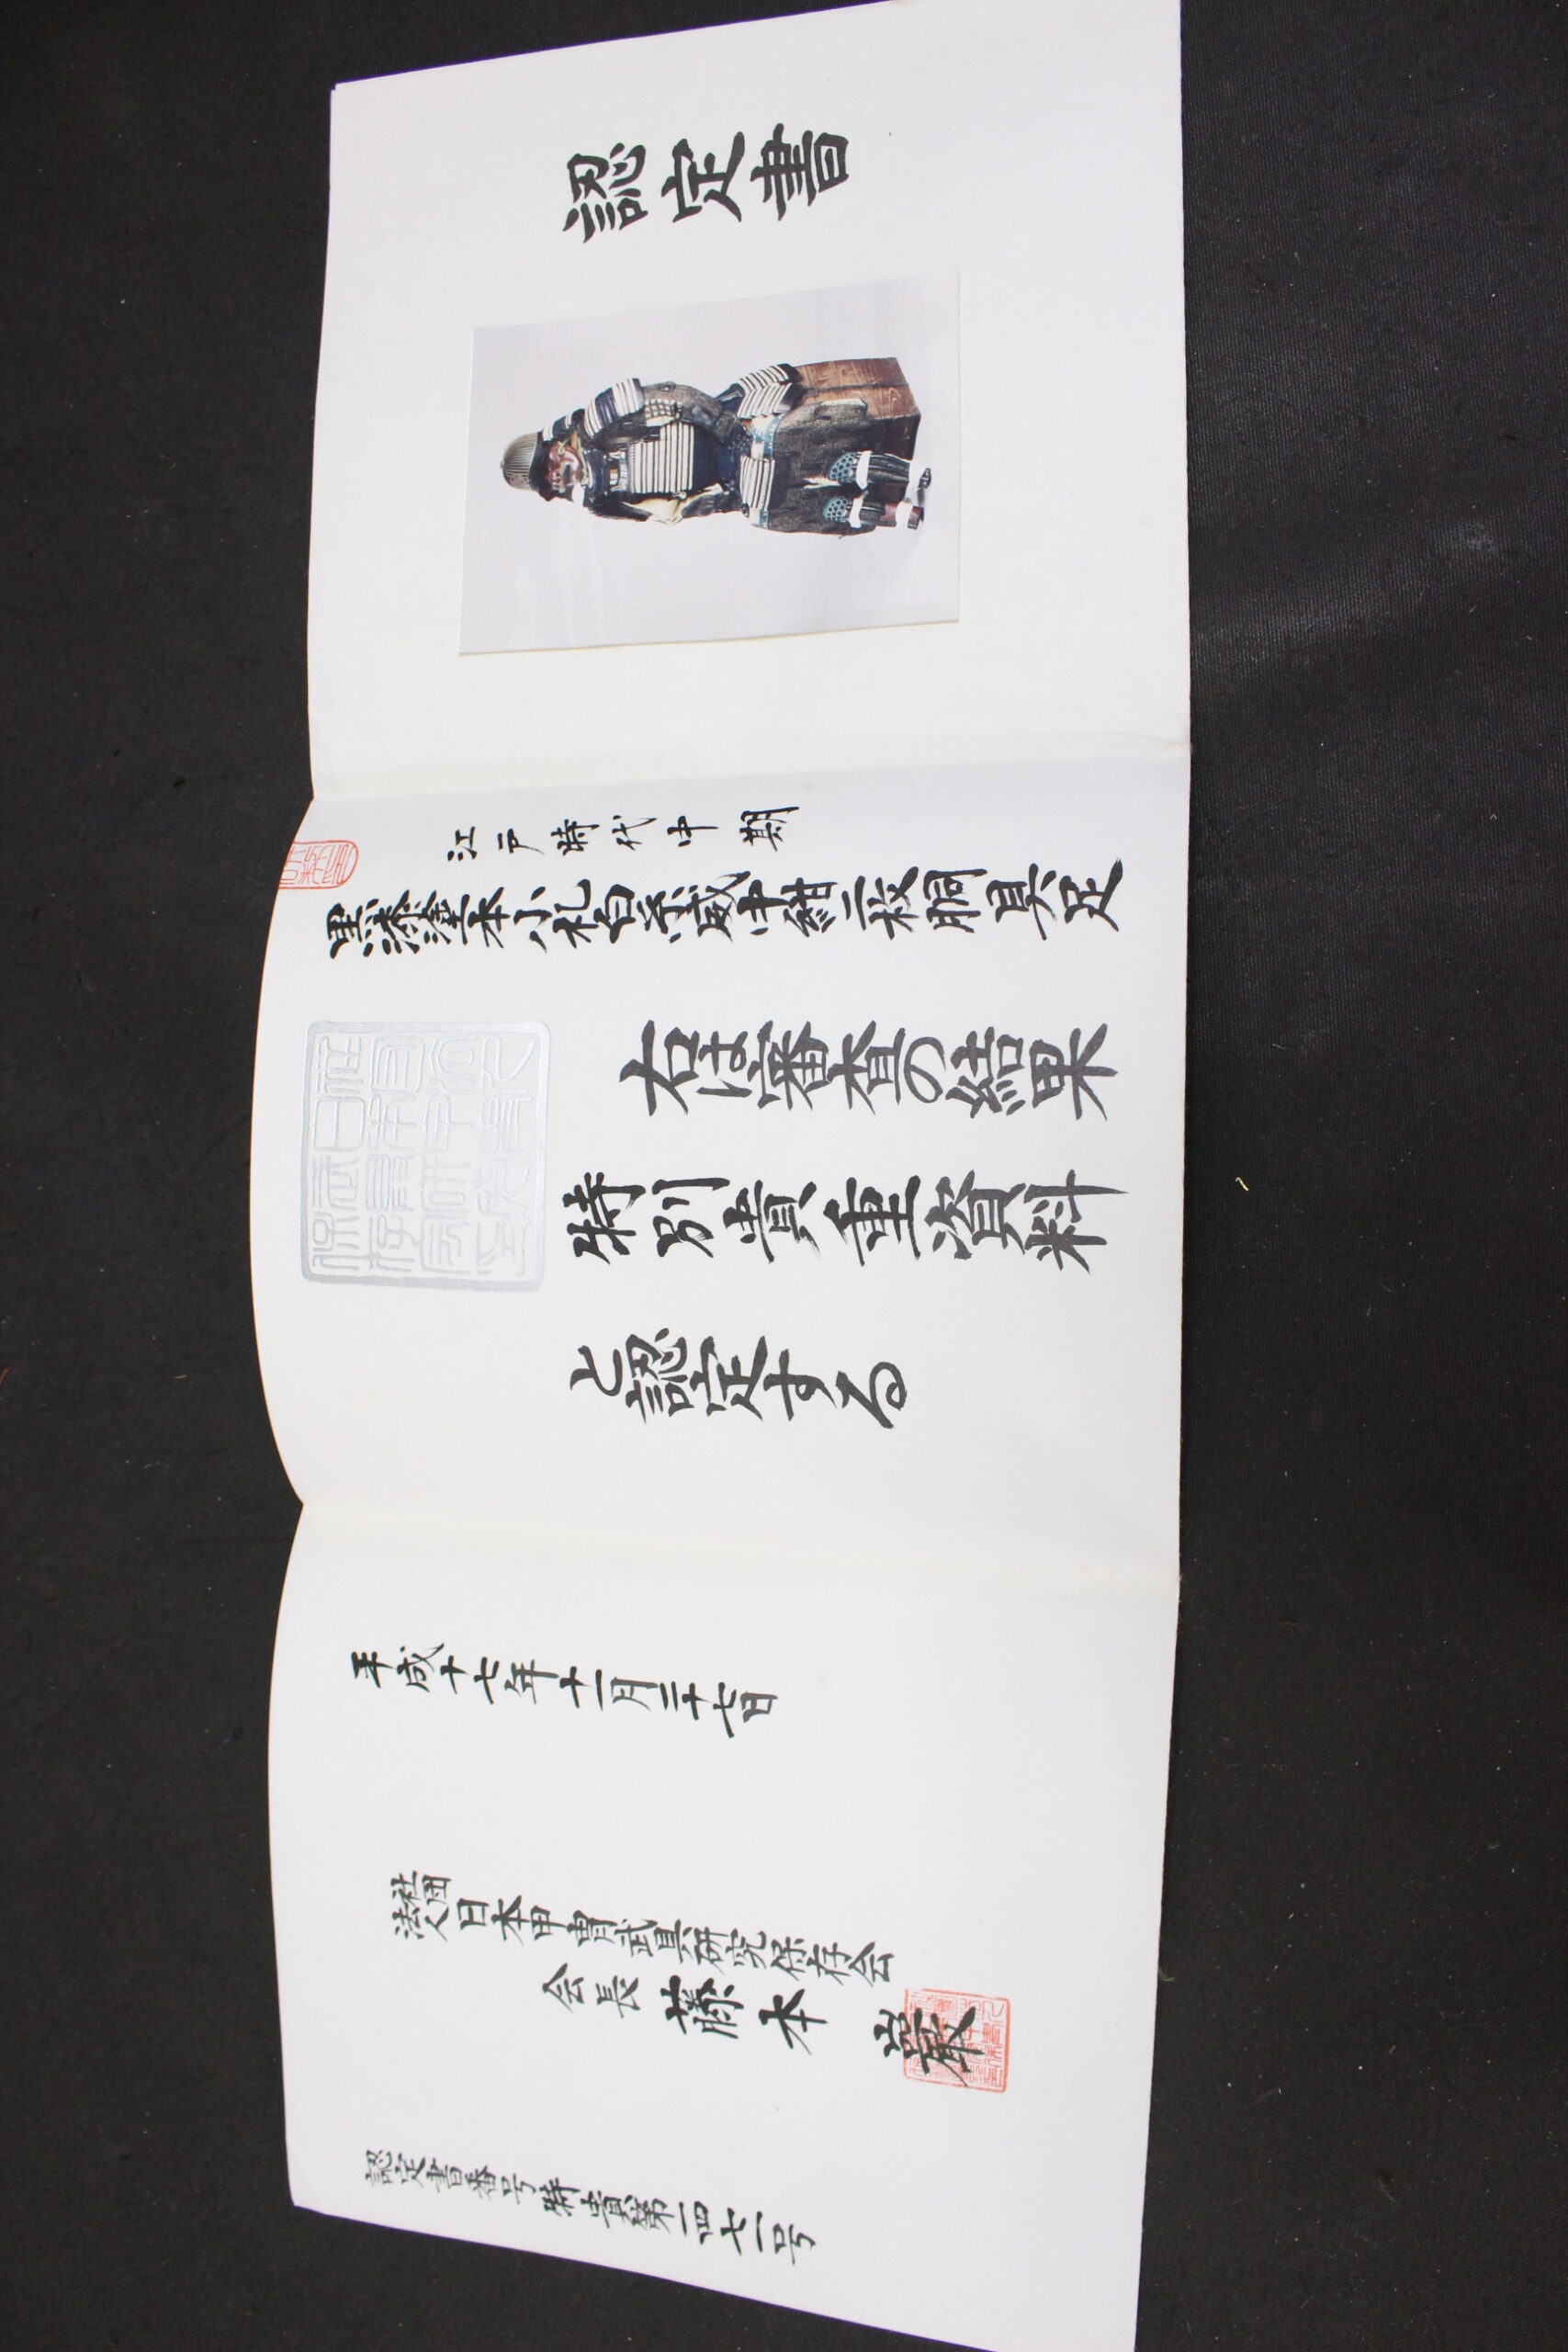 認定書
江戸時代中期
黒漆塗本小札白糸威中紺二枚胴具足
右は審査の結果
特別貴重資料
と認定する
平成十七年十一月二十七日
社団法人日本甲冑武具研究保存会
会長 藤本 巌
認定書番号特貴第一四七一号